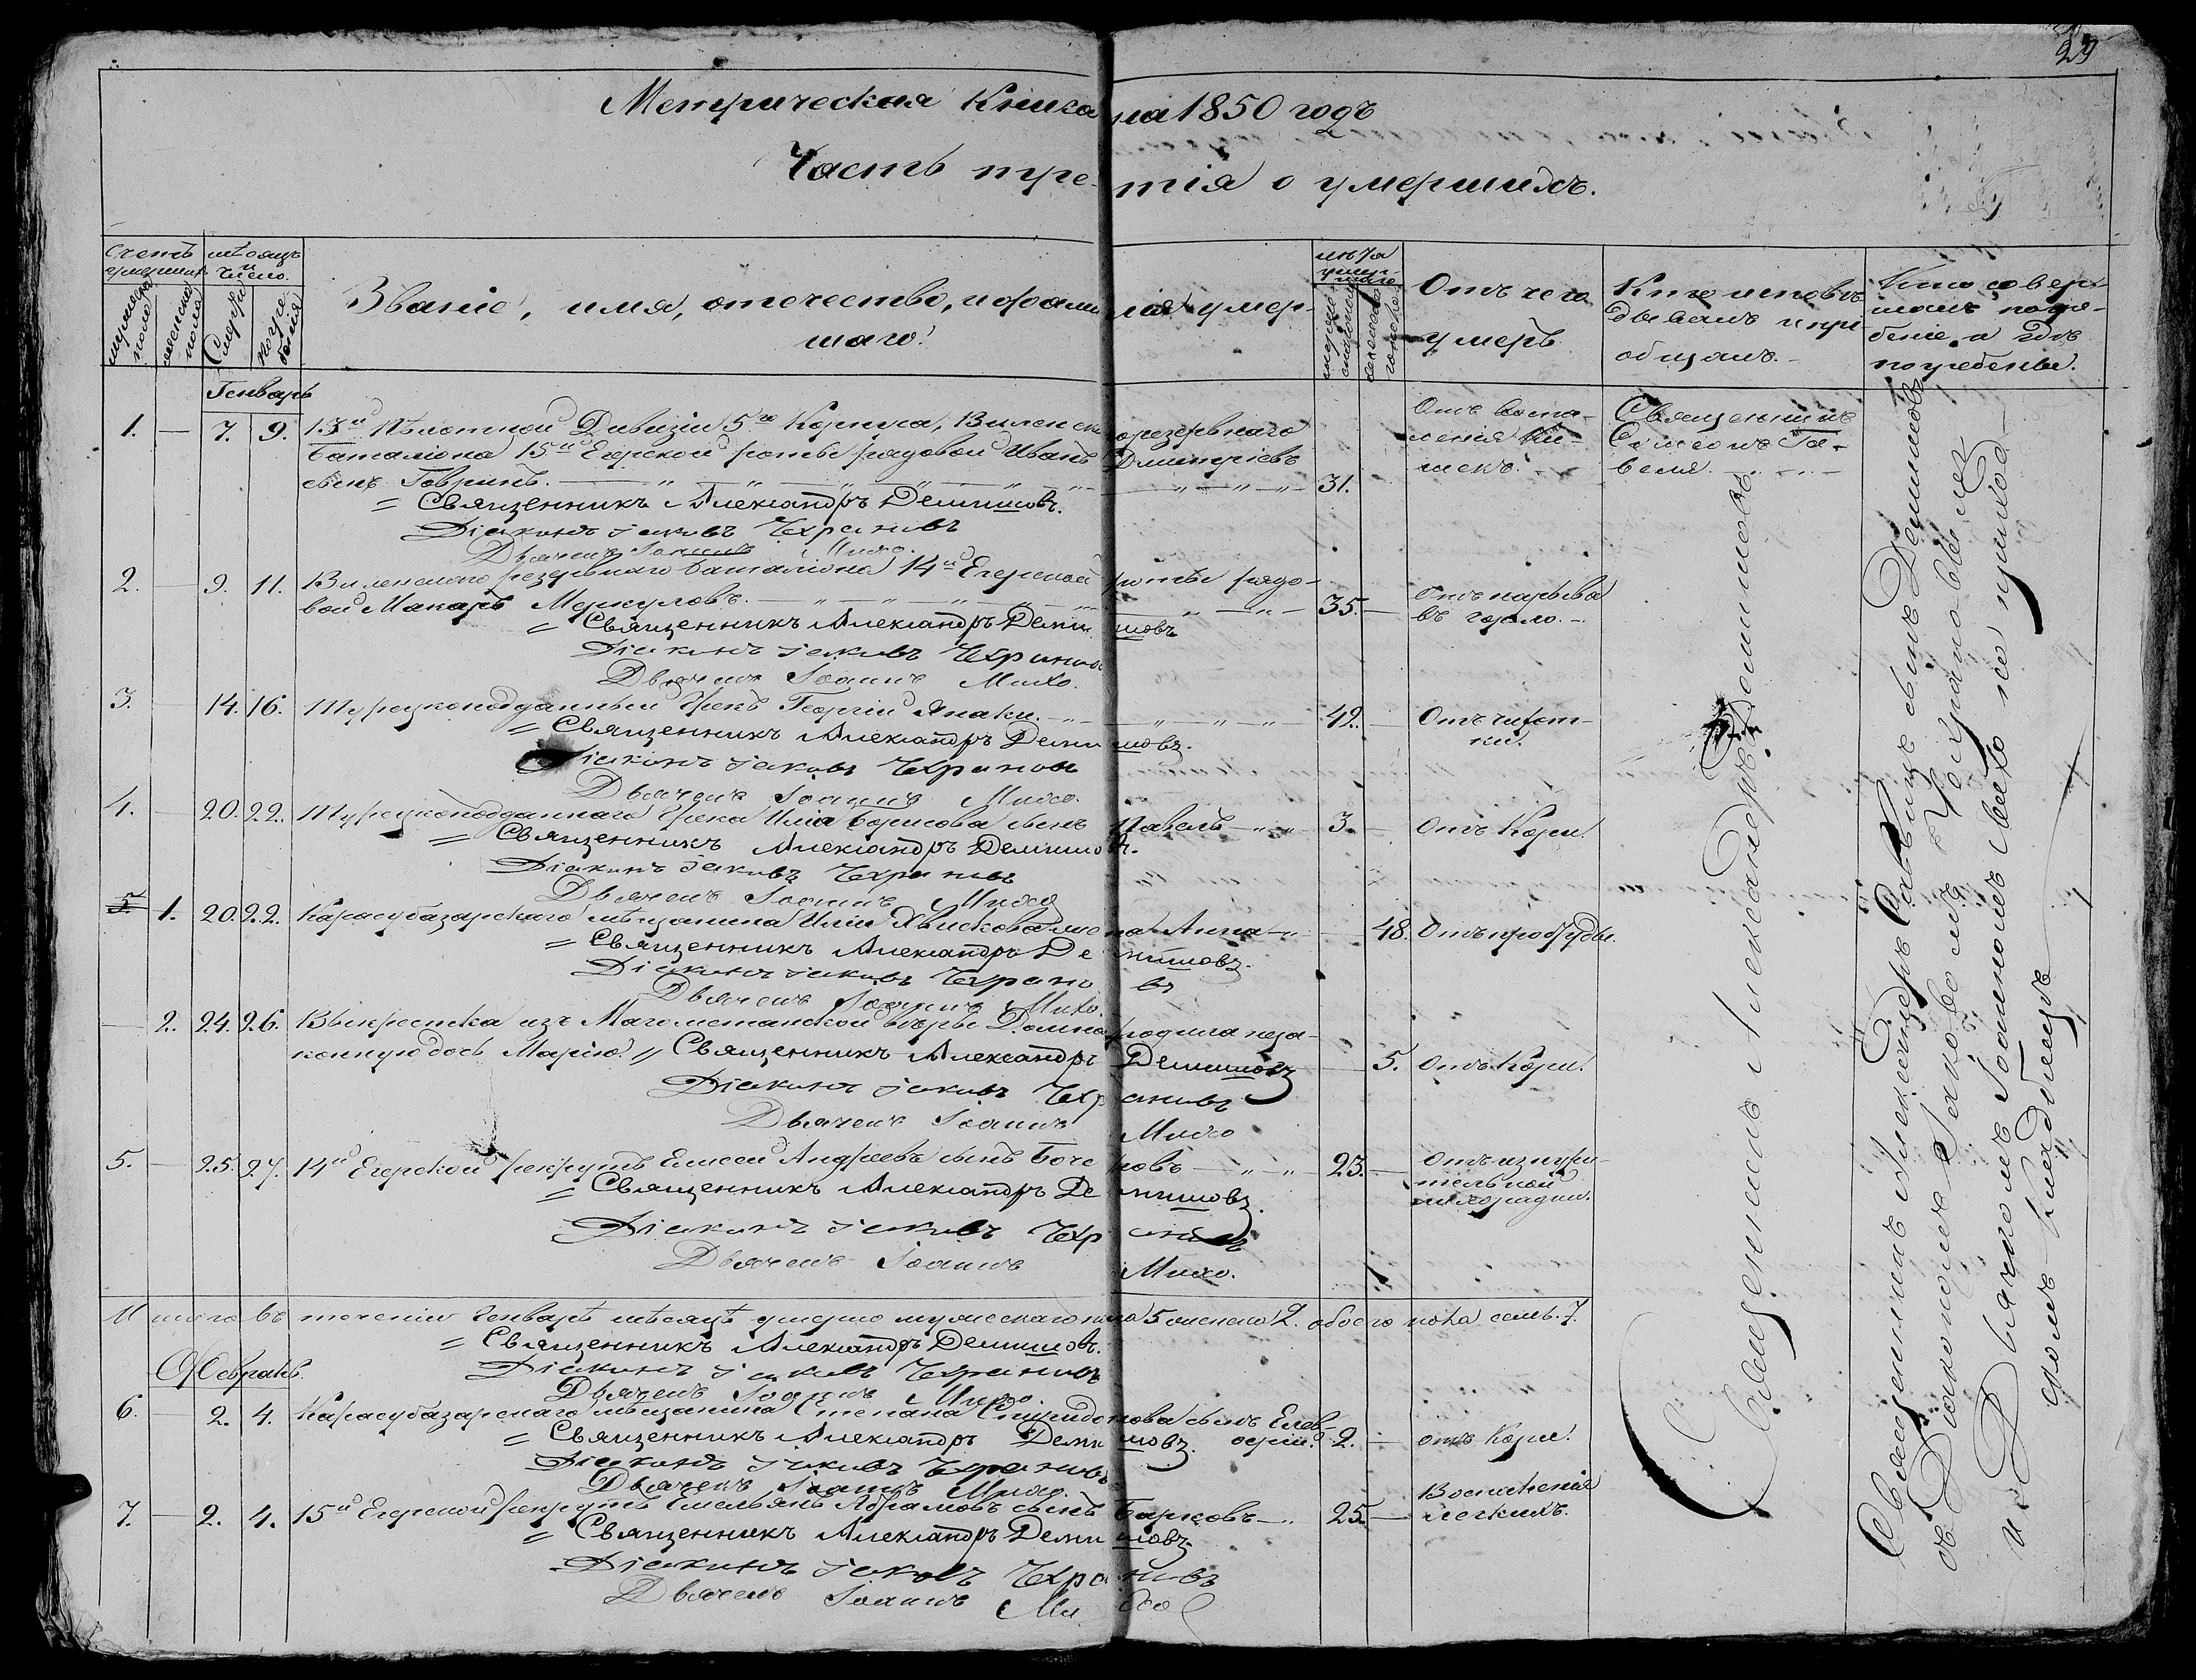 29
Метрическая Книга на 1850 годъ
Часть третія о умершихъ.
Счетъ умершихъ
мужеска пола
женска пола
мѣсяцъ и число.
Смерти
погребенія
Званіе, имя, отечество, и фамилія умершаго.
лѣта умершаго
мужескаго
женскаго
Отъ чего умеръ
Кто исповѣдывалъ и пріобщалъ.
Кто совершалъ погребеніе и гдѣ погребены.
Генварь
1. — 7. 9. 13й Пѣхотной Дивизіи 5го Корпуса, Виленскаго резервнаго
баталіона 15й Егерской роты рядовой Иванъ Дмитріевъ
сынъ Гавринъ. 31.
Отъ воспаленія кишекъ.
Священникъ Симеонъ
= Священникъ Александръ Демишовъ.
Діаконъ Іаковъ Чехрановъ
Дьячекъ Іоаннъ Михо.
2. — 9. 11. Виленскаго резервнаго баталіона 14й Егерской роты рядо-
вой Макаръ Меркуловъ. 35. — Отъ нарыва
въ горло.
= Священникъ Александръ Демишовъ
Діаконъ Іаковъ Чехрановъ
Дьячекъ Іоаннъ Михо.
3. — 14. 16. Турецкоподданный Грекъ Георгій Янаки. 42. — Отъ чихот-
ки.
= Священникъ Александръ Демишовъ.
Діаконъ Іаковъ Чехрановъ
Дьячекъ Іоаннъ Михо.
4. — 20. 22. Турецкоподданнаго Грека Иліа Борисова сынъ Павелъ 3. — Отъ Кори.
= Священникъ Александръ Демишовъ.
Діаконъ Іаковъ Чехрановъ
Дьячекъ Іоаннъ Михо
5. 1. 20. 22. Карасубазарскаго мѣщанина Иліи жена Анна 48. Отъ простуды.
= Священникъ Александръ Демишовъ.
Діаконъ Іаковъ Чехрановъ
Дьячекъ Іоаннъ Михо.
— 2. 24. 26. Выкрестка изъ Магометанской вѣры Домна родила неза-
конную дочь Марію. 5. Отъ Кори.
= Священникъ Александръ Демишовъ
Діаконъ Іаковъ Чехрановъ
Дьячекъ Іоаннъ Михо
5. — 25. 27. 14й Егерской рекрутъ Елисей Андреевъ сынъ 23. — Отъ изнури-
тельной
лихорадки.
= Священникъ Александръ Демишовъ.
Діаконъ Іаковъ Чехрановъ
Дьячекъ Іоаннъ Михо.
Итого въ теченіи Генваря мѣсяцѣ умерло мужескаго пола 5 женска 2. обоего пола семь. 7.
= Священникъ Александръ Демишовъ.
Діаконъ Іаковъ Чехрановъ
Дьячекъ Іоаннъ Михо.
Февраль.
6. 2. 4. Карасубазарскаго мѣщанина Степана Спиридонова сынъ Елев-
ферій. 2. — отъ Кори.
= Священникъ Александръ Демишовъ.
Діаконъ Іаковъ Чехрановъ
Дьячекъ Іоаннъ Михо.
7. — 2. 4. 15й Егерской рекрутъ Емельянъ Абрамовъ сынъ Барковъ 25. — Воспаленія
легкихъ.
= Священникъ Александръ Демишовъ.
Діаконъ Іаковъ Чехрановъ
Дьячекъ Іоаннъ Михо
Священникъ Александръ Демишовъ
Священникъ Александръ Саввичъ Демишовъ
съ Діакономъ Іаковомъ Чехрановымъ
и Дьячкомъ Іоанномъ Михо на приход-
скомъ кладбищѣ